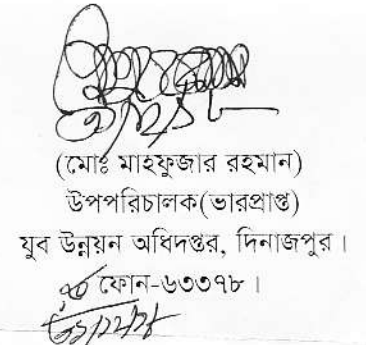 (মোঃ মাহফুজার রহমান)
উপপরিচালক(ভারপ্রাপ্ত)
যুব উন্নয়ন অধিদপ্তর, দিনাজপুর।
ফোন-৬৩৩৭৮।